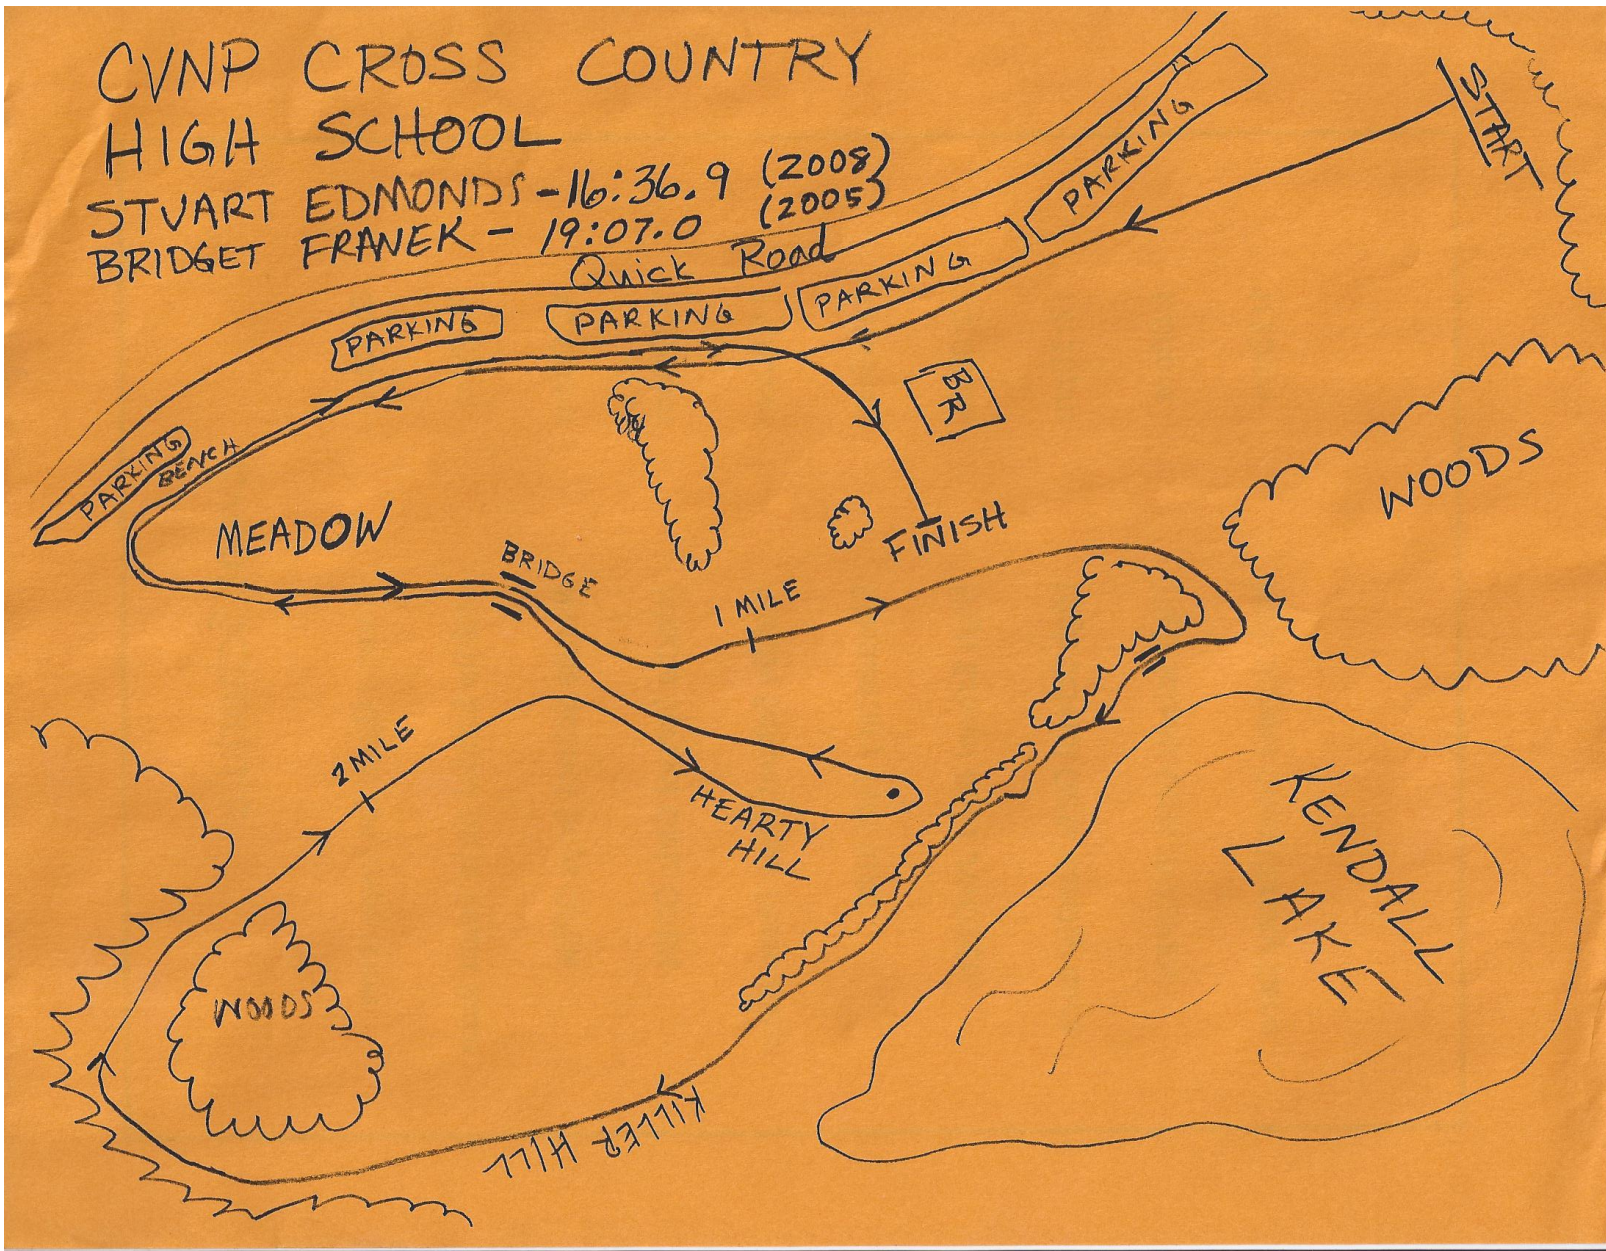 CVNP CROSS COUNTRY
HIGH SCHOOL
STUART EDMONDS - 16:36.9 (2008)
BRIDGET FRANEK - 19:07.0 (2005)
Quick Road
START
PARKING
PARKING
PARKING
PARKING
PARKING
BENCH
BR
MEADOW
BRIDGE
FINISH
WOODS
1 MILE
2 MILE
HEARTY
HILL
KENDALL
LAKE
WOODS
KILLER HILL